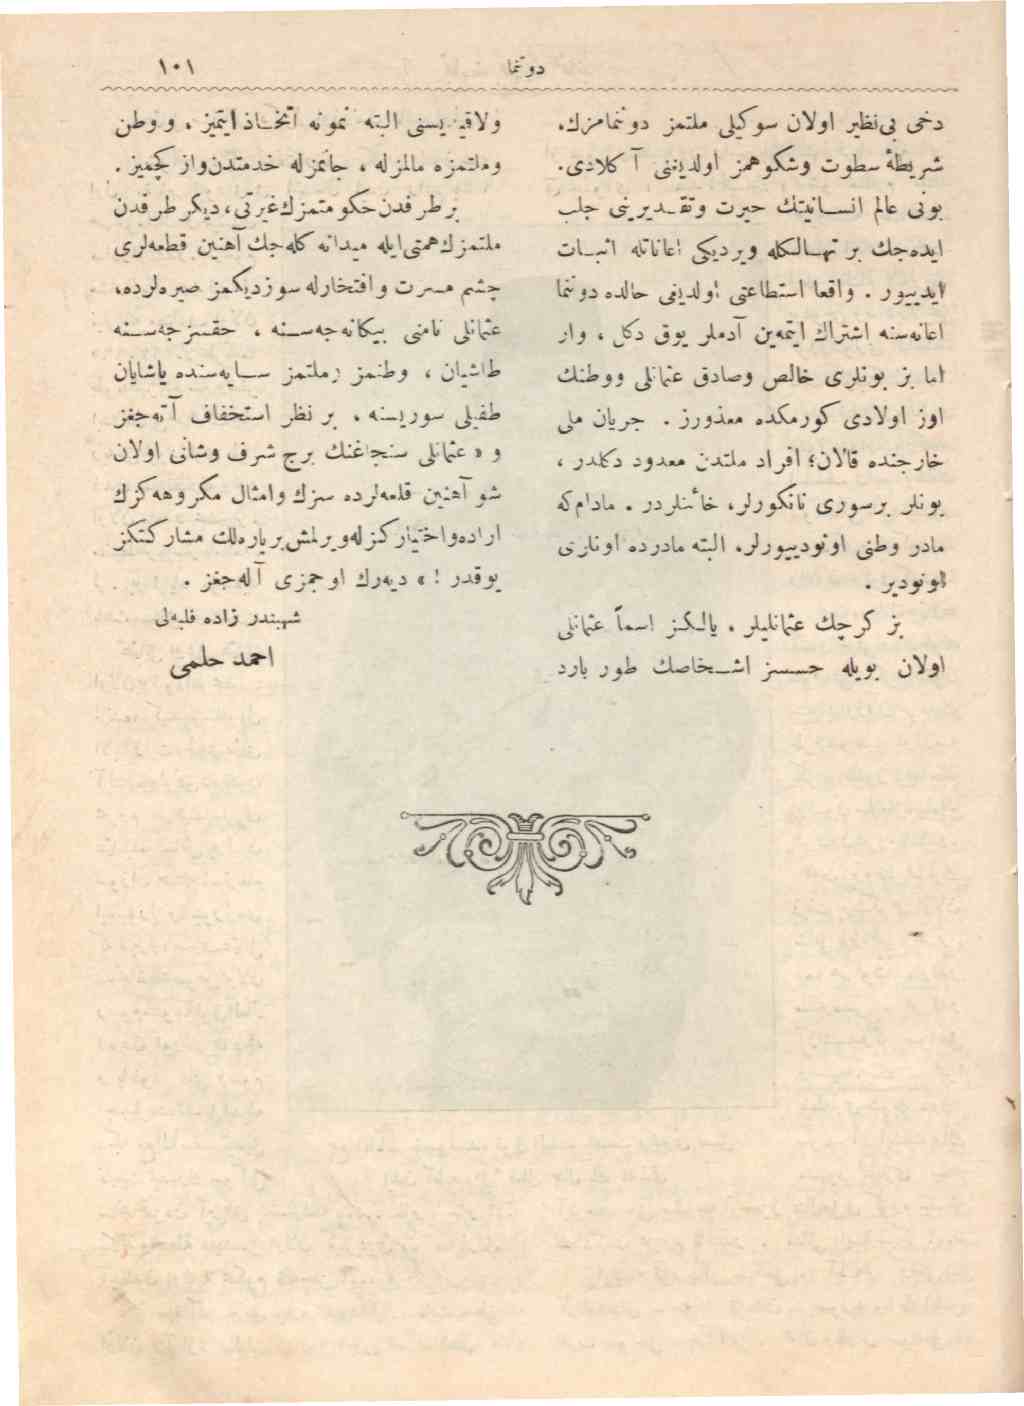 دوننما
١٠١
دخی بی‌نظیر اولان سوکیلی ملتمز دوننمامزك،
شریطهٔ سطوت وشکوهمز اولدیغنی آ کلادی.
بونی عالم انسـانیتك حیرت وتقـدیرینی جلب
ایده‌جك بر تهـالـکله ویردیکی اعاناتله اثبـات
ایدییور . واقعا استطاعتی اولدیغی حالده دوننما
اعانه‌سنه اشتراك ایتمه‌ین آدملر یوق دکل ، وار
اما بز بونلری خالص وصادق عثمانلی ووطنك
اوز اولادی کورمکده معذورز . جریان ملی
خارجنده قالان؛ افراد ملتدن معدود دکلدر ،
بونلر برسوری نانکورلر، خائنلردر . مادام‌که
مادر وطنی اونودییورلر، البته مادرده اونلری
اونودیر .
بز کرچك عثمانلیلر ، یالـکـز اسماً عثمانلی
اولان بویله حسسز اشـخاصك طور بارد
ولاقیدیسنی البته نمونه اتخـاذ ایتمیز ، ووطن
وملتمزه مالمزله ، جانمزله خدمتدن‌واز کچمیز .
بر طرفدن حکومتمزك غیرتی، دیکر طرفدن
ملتمزك همتی ایله میدانه کله‌جك آهنین قطعه‌لری
چشم مسرت وافتخارله سوزدیکمز صیره‌لرده،
عثمانلی نامنی بیکانه‌جه‌سـنه ، حقسزجه‌سـنه
طاشیان ، وطنمز وملتمز سـایه‌سنده یاشایان
طفیلی سوریسنه ، بر نظر استخفاف آته‌جغز
و « عثمانلی سنجاغنك برج شرف وشانی اولان
شو آهنین قلعه‌لرده سزك وامثال مکروهه‌کزك
اراده‌واختیارکزله‌ویرلمش بر پاره‌لك مشارکتکز
یوقدر ! » دیه‌رك اوجمزی آله‌جغز .
شهبندر زاده فلبه‌لی
احمد حلمی